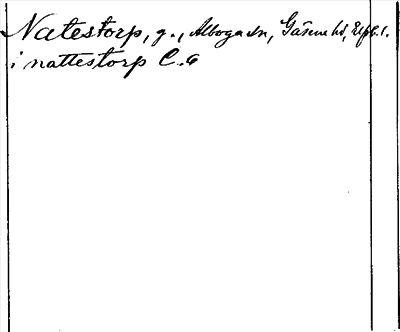 Natestorp, g., Alboga sn, Gäsene hd, Elfsb. l.
i nattestorp C. 6